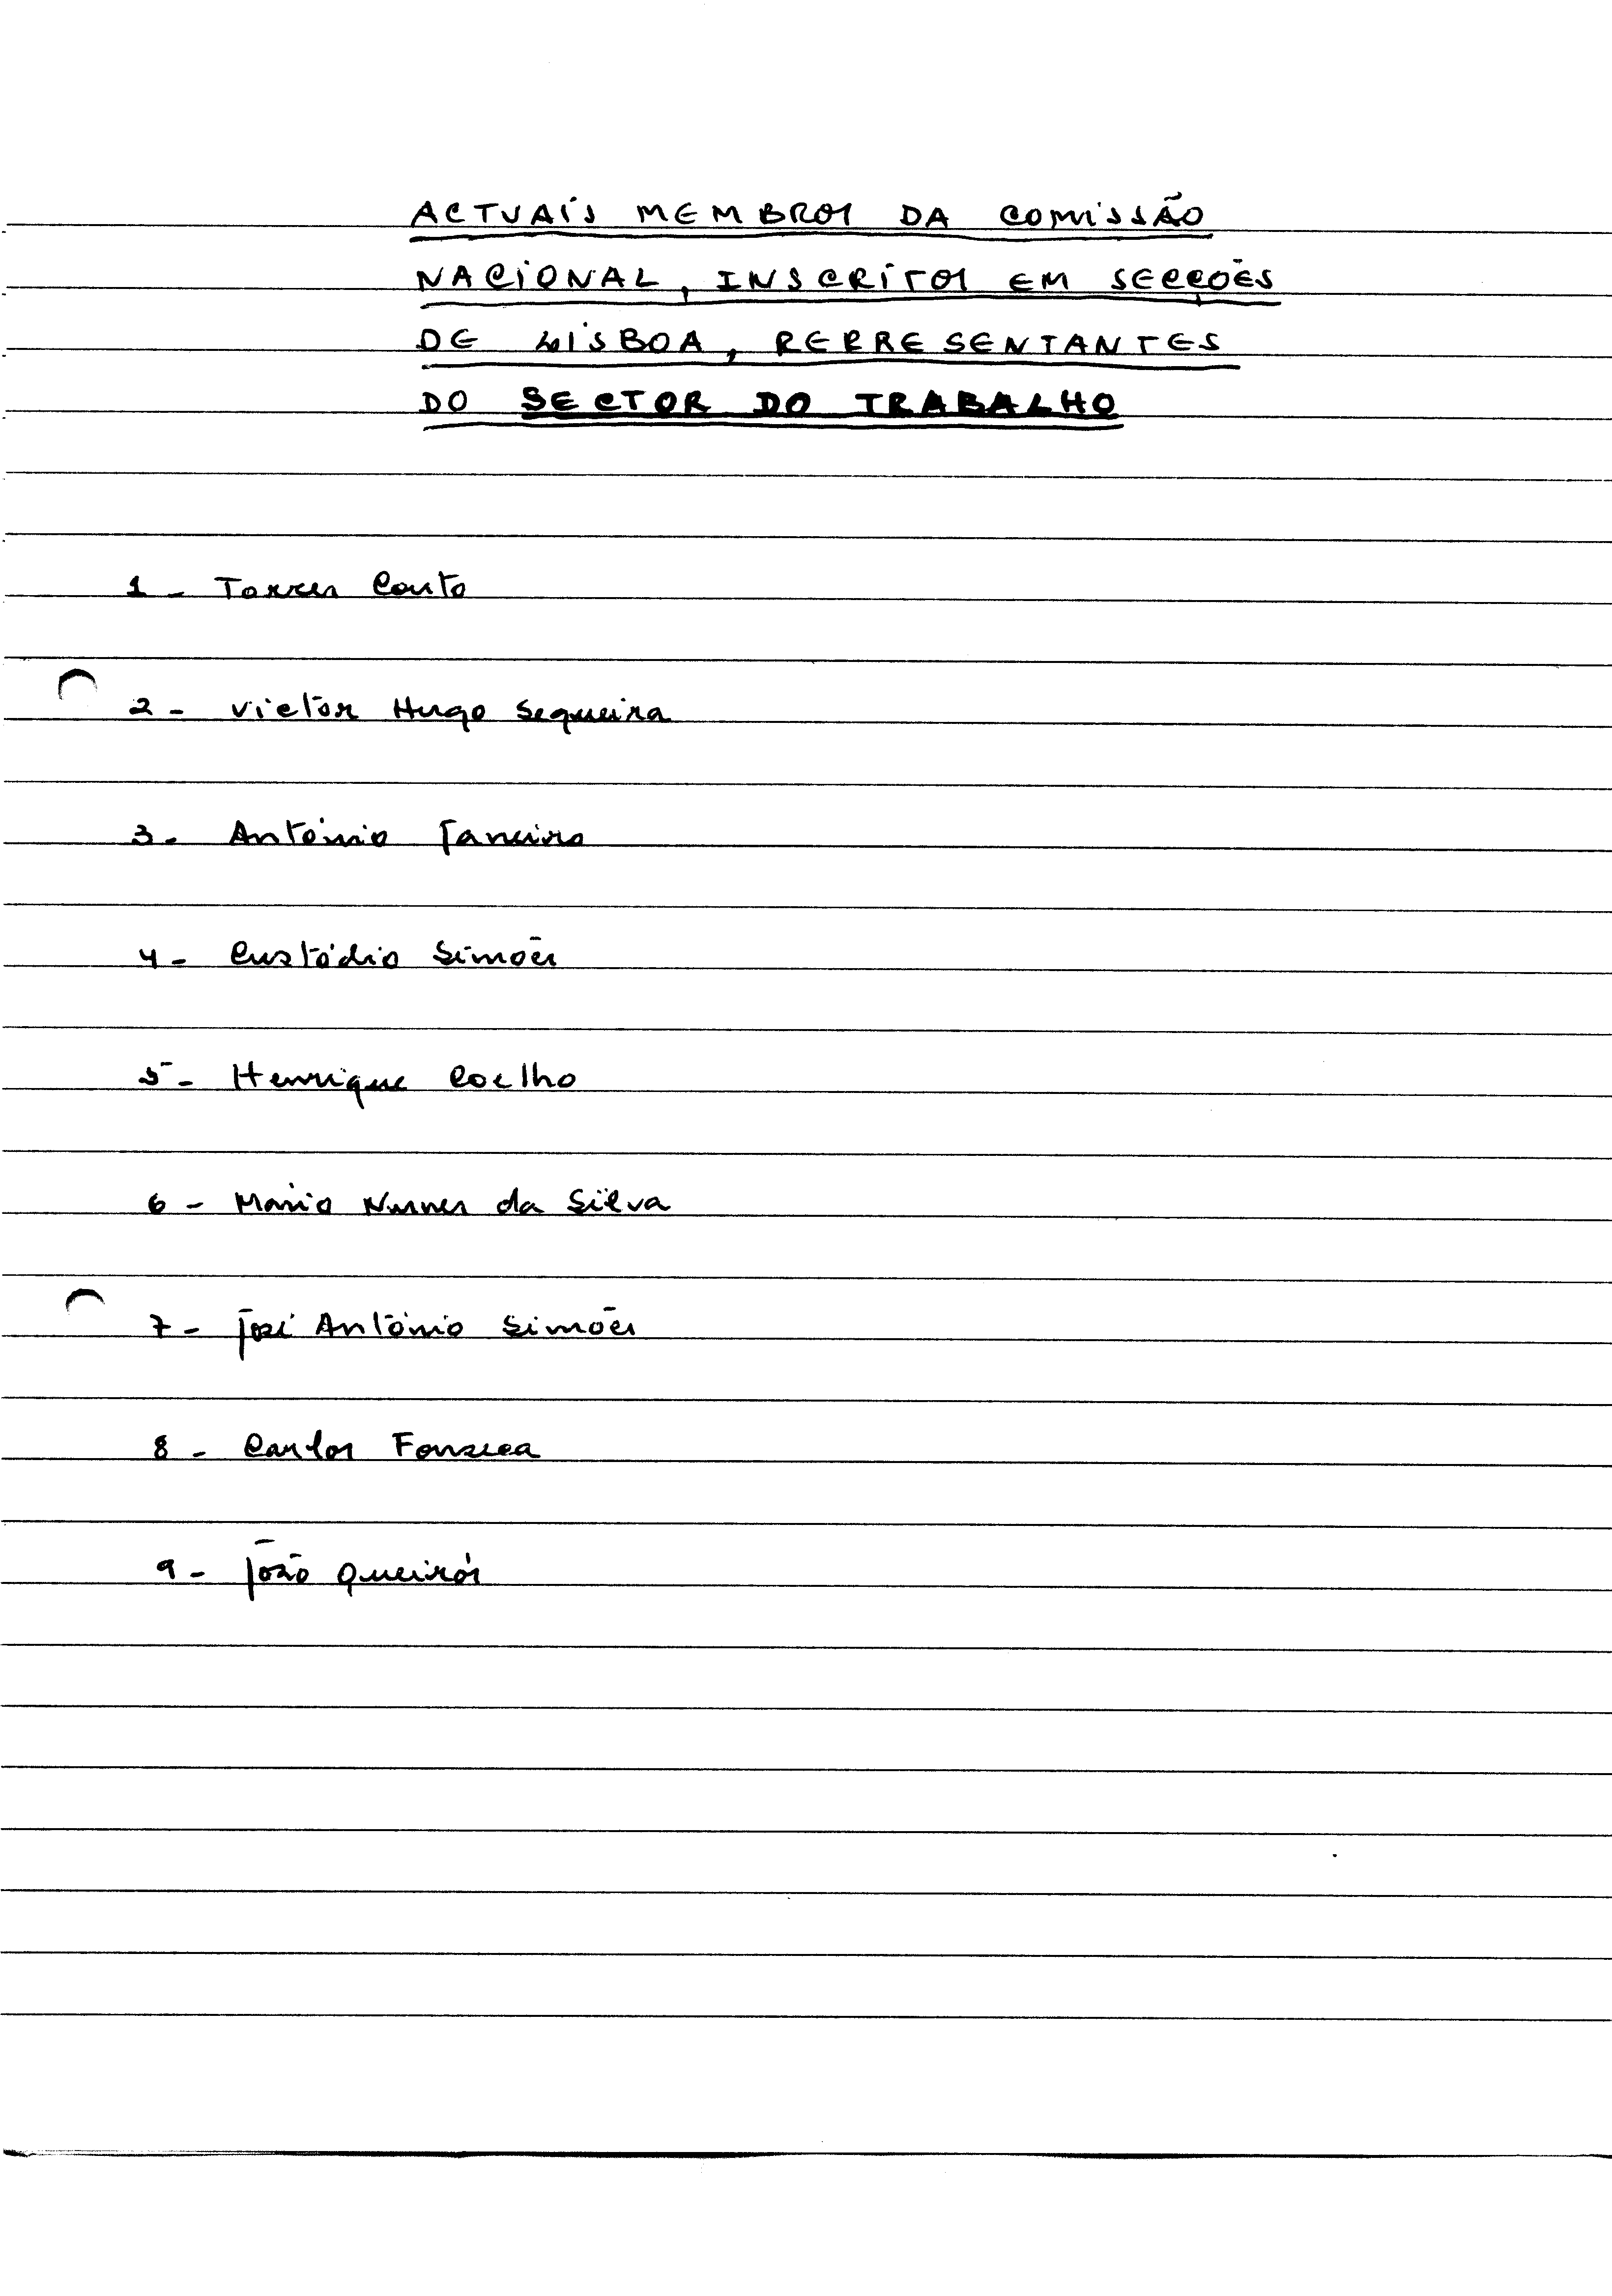 ACTUAIS MEMBROS DA COMISSÃO
NACIONAL, INSCRITOS EM SECÇÕES
DE LISBOA, REPRESENTANTES
DO SECTOR DO TRABALHO
1 - Torres Couto
2 - Victor Hugo Sequeira
3 - António Janeiro
4 - Custódio Simões
5 - Henrique Coelho
6 - Mário Nunes da Silva
7 - José António Simões
8 - Carlos Fonseca
9 - João Queirós